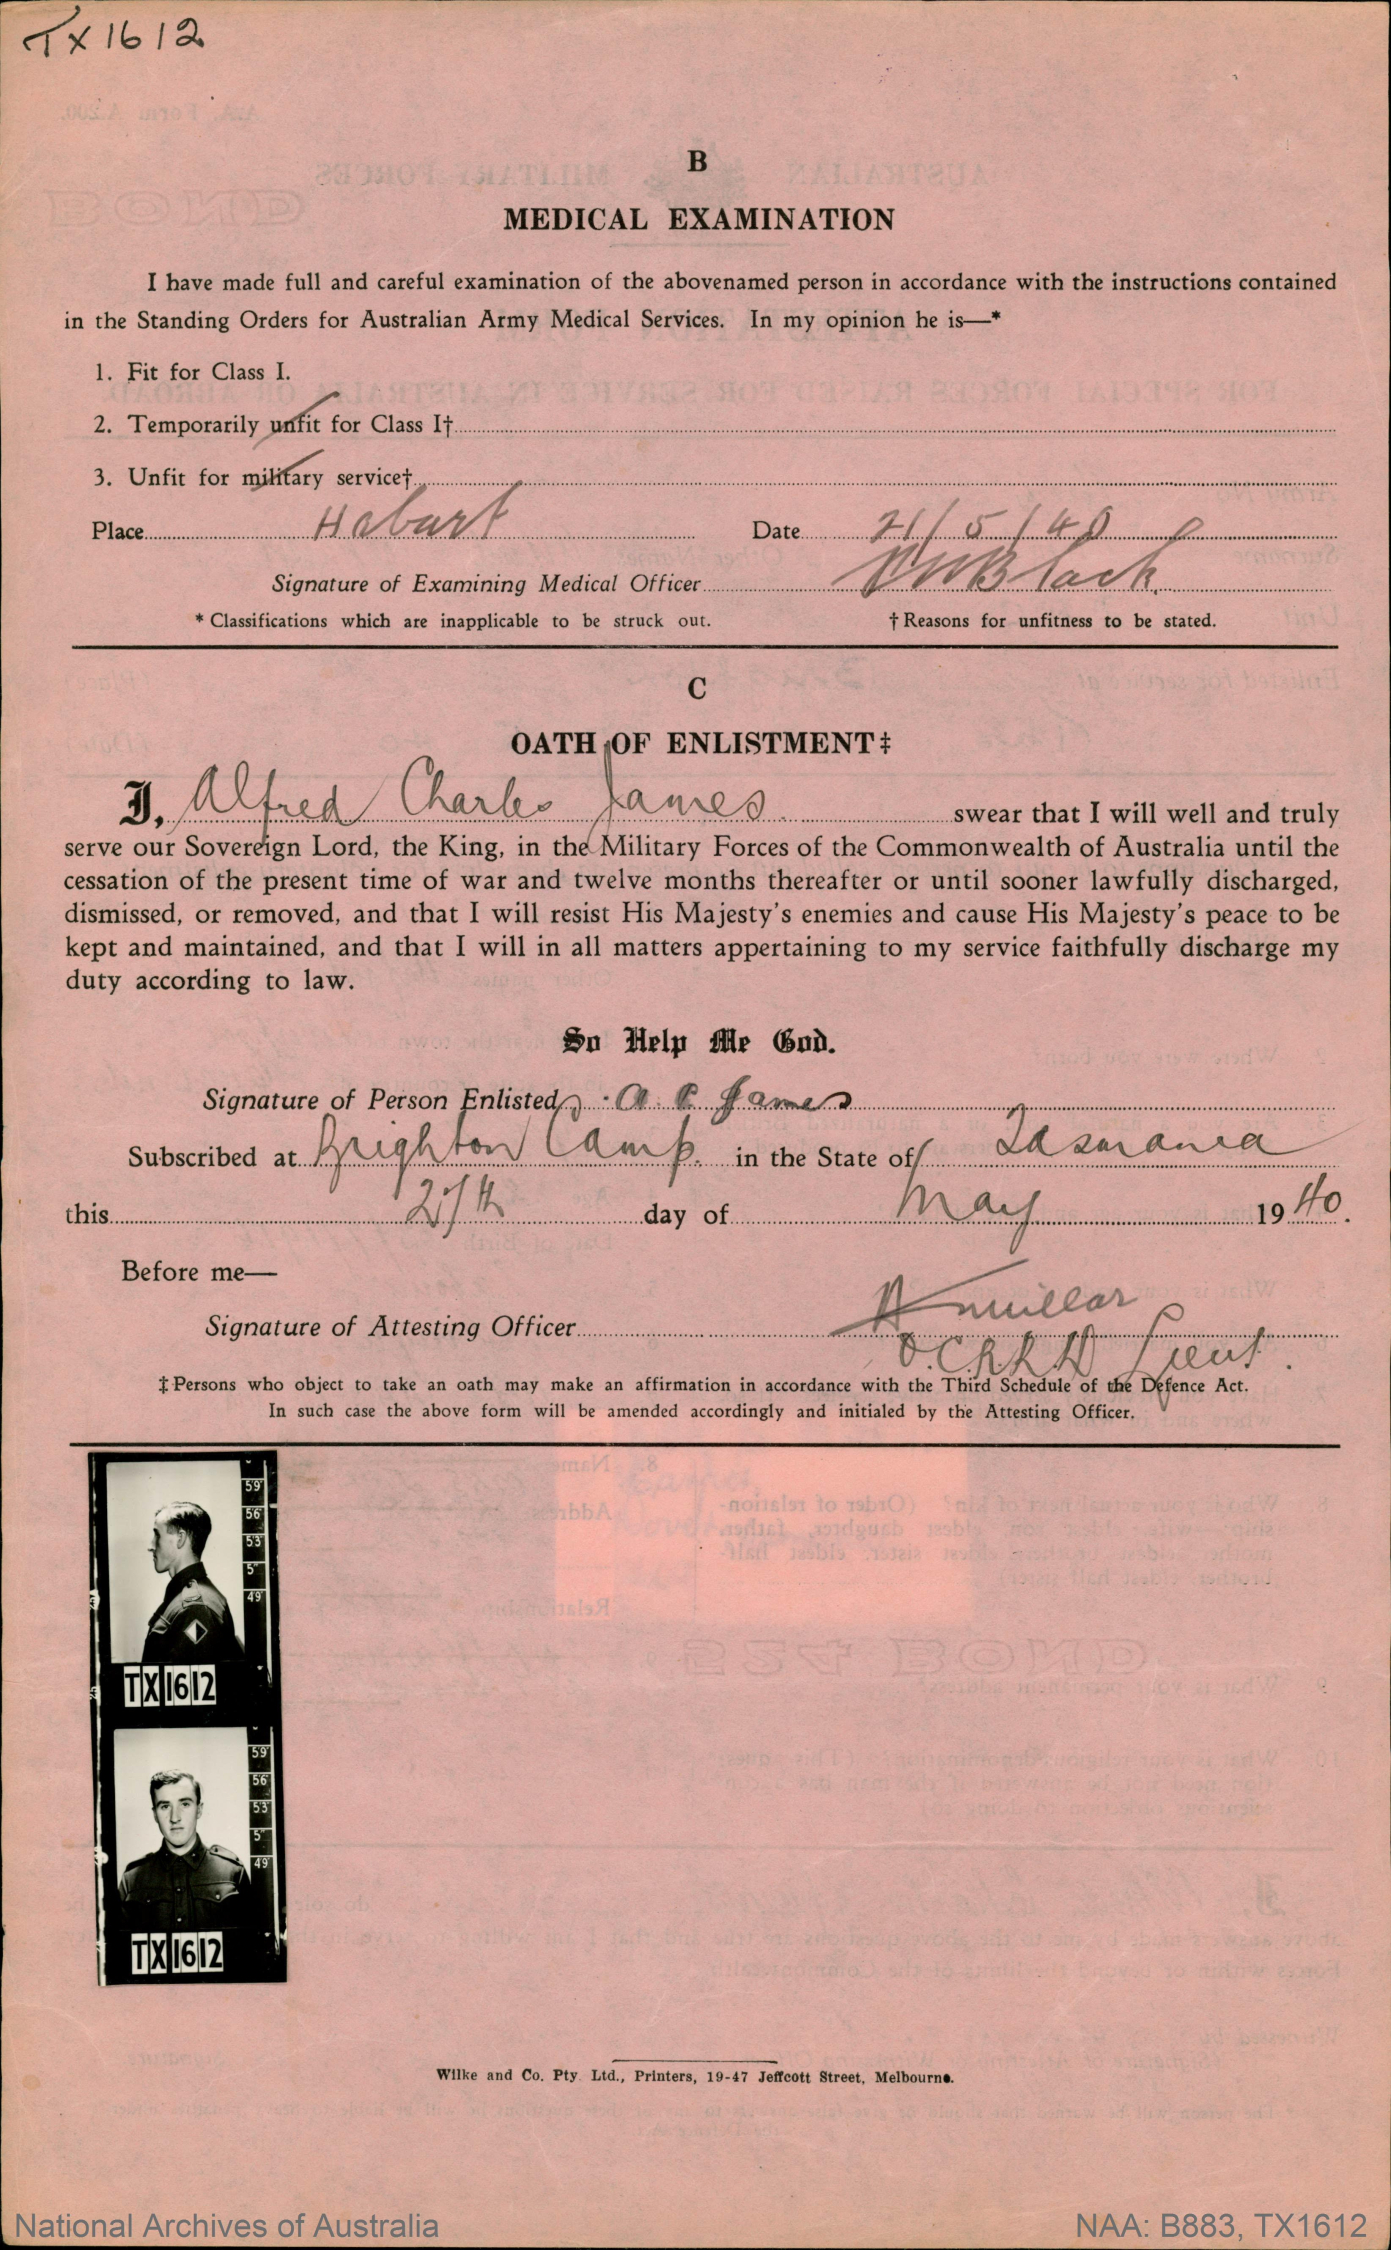 TX1612
B
MEDICAL EXAMINATION
I have made full and careful examination of the abovenamed person in accordance with the instructions contained
in the Standing Orders for Australian Army Medical Services. In my opinion he is—*
1. Fit for Class I.
2. Temporarily unfit for Class I†
3. Unfit for military service†
Place Hobart Date 21/5/40
Signature of Examining Medical Officer Black
* Classifications which are inapplicable to be struck out. † Reasons for unfitness to be stated.
C
OATH OF ENLISTMENT‡
I, Alfred Charles James swear that I will well and truly
serve our Sovereign Lord, the King, in the Military Forces of the Commonwealth of Australia until the
cessation of the present time of war and twelve months thereafter or until sooner lawfully discharged,
dismissed, or removed, and that I will resist His Majesty's enemies and cause His Majesty's peace to be
kept and maintained, and that I will in all matters appertaining to my service faithfully discharge my
duty according to law.
So Help Me God.
Signature of Person Enlisted A C James
Subscribed at Brighton Camp. in the State of Tasmania
this 27th day of May 1940.
Before me—
Signature of Attesting Officer Millar
Lieut.
‡ Persons who object to take an oath may make an affirmation in accordance with the Third Schedule of the Defence Act.
In such case the above form will be amended accordingly and initialed by the Attesting Officer.
59
56
53
5"
49
TX1612
59
56
53
5"
49
TX1612
Wilke and Co. Pty. Ltd., Printers, 19-47 Jeffcott Street, Melbourne.
National Archives of Australia NAA: B883, TX1612